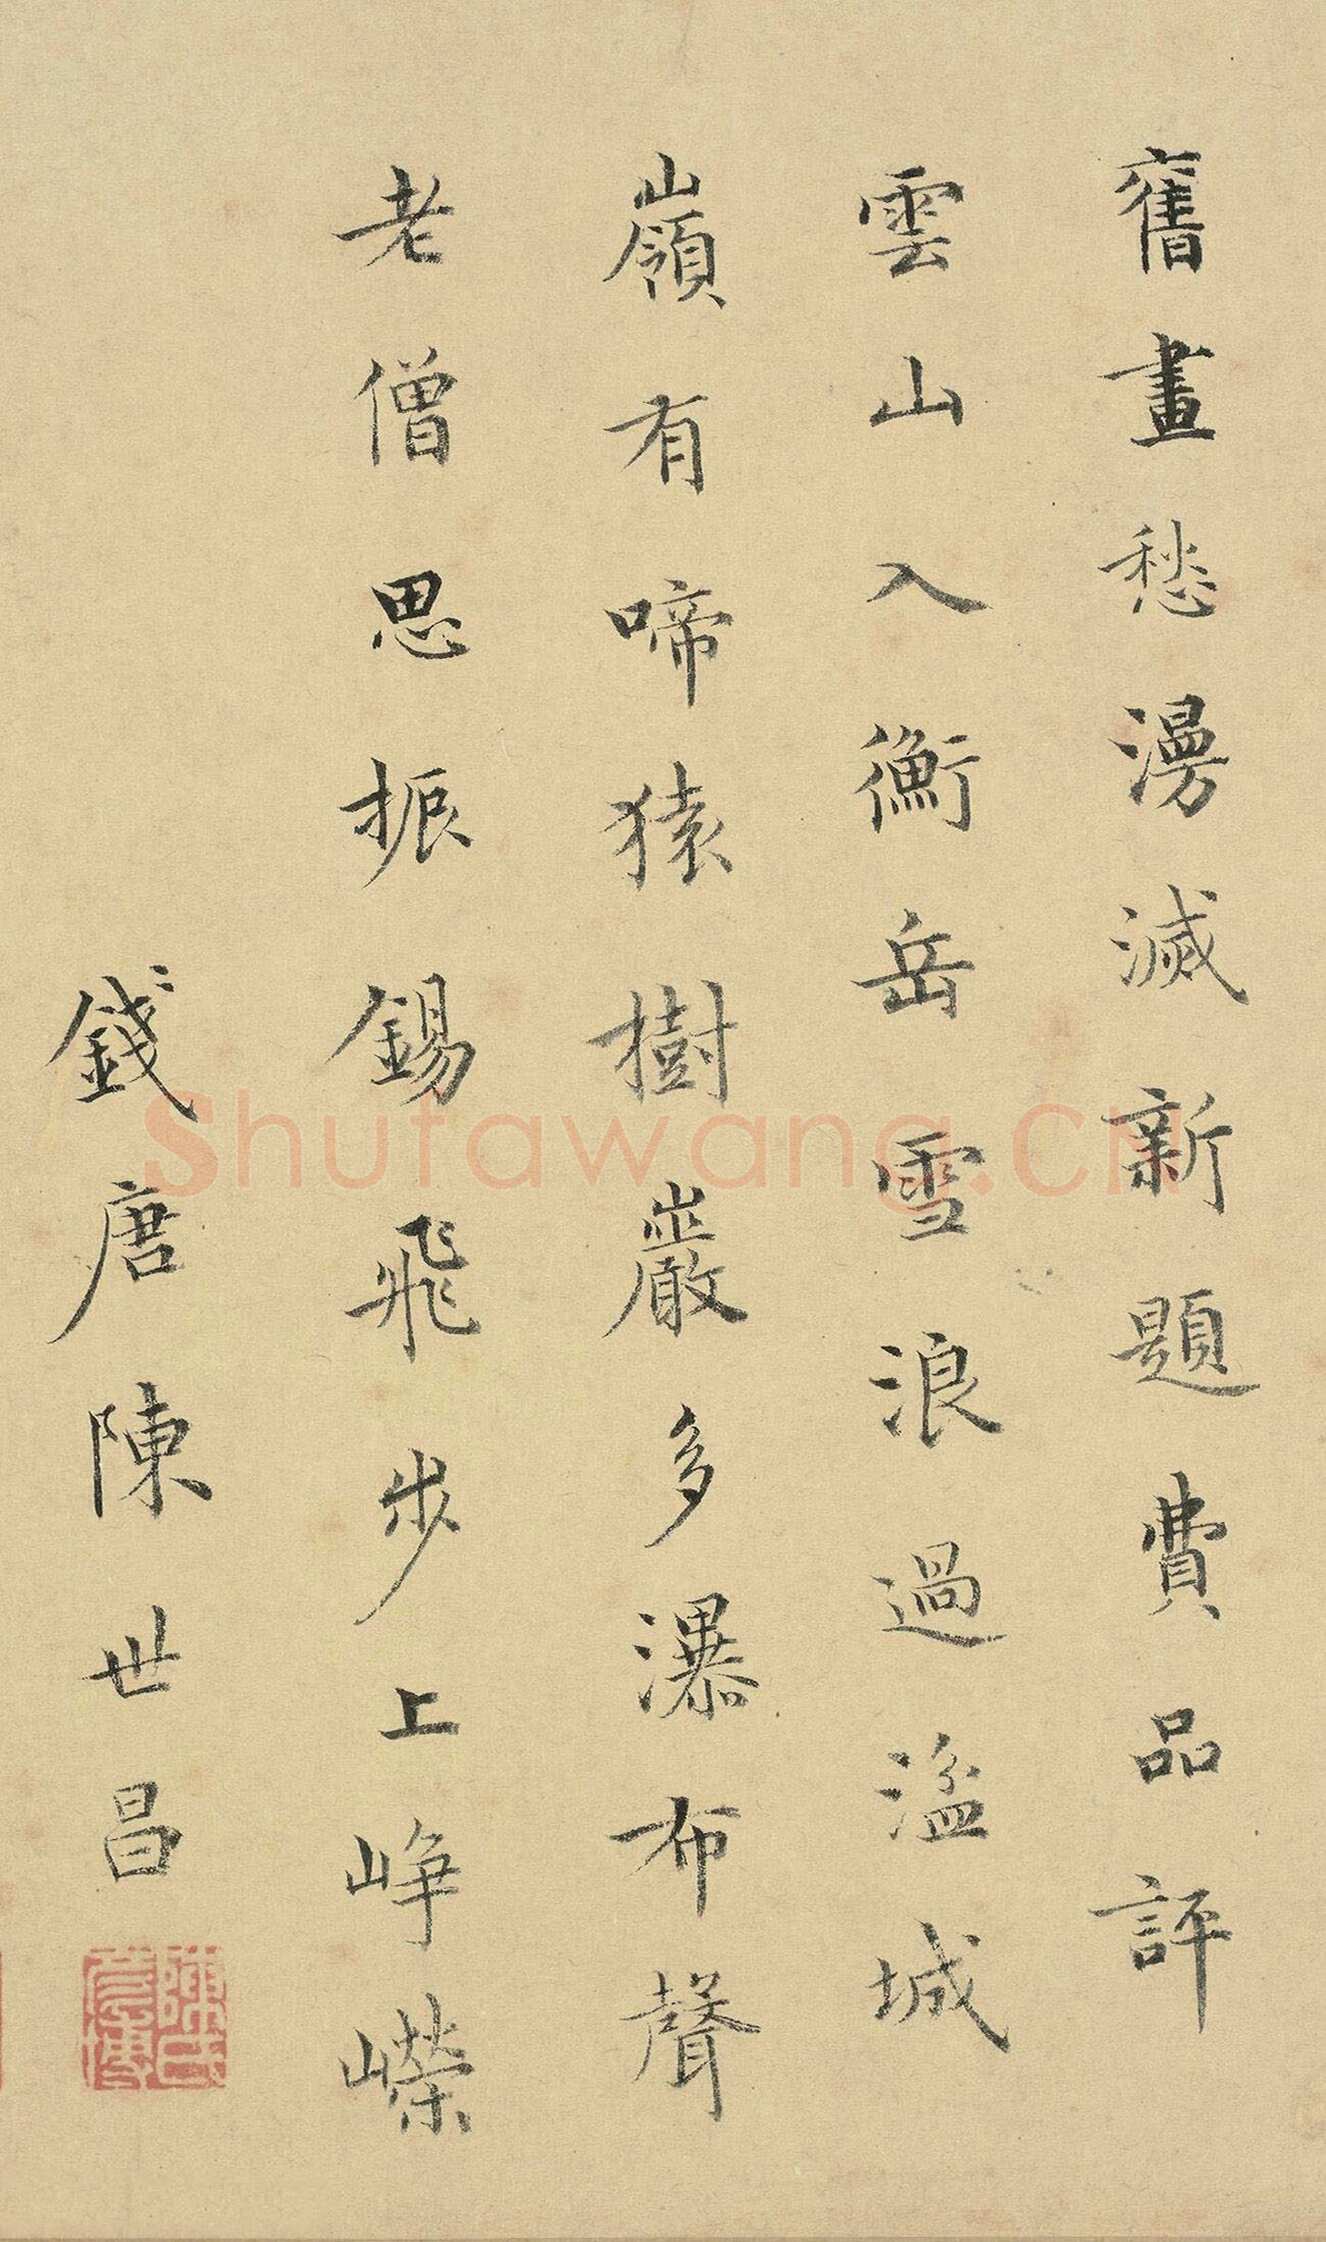 舊畫愁漫滅新題費品評
雲山入衡岳雪浪過湓城
嶺有啼猿樹巖多瀑布聲
老僧思振錫飛步上崢嶸
錢唐陳世昌
陳氏彥博
shutawang.cn